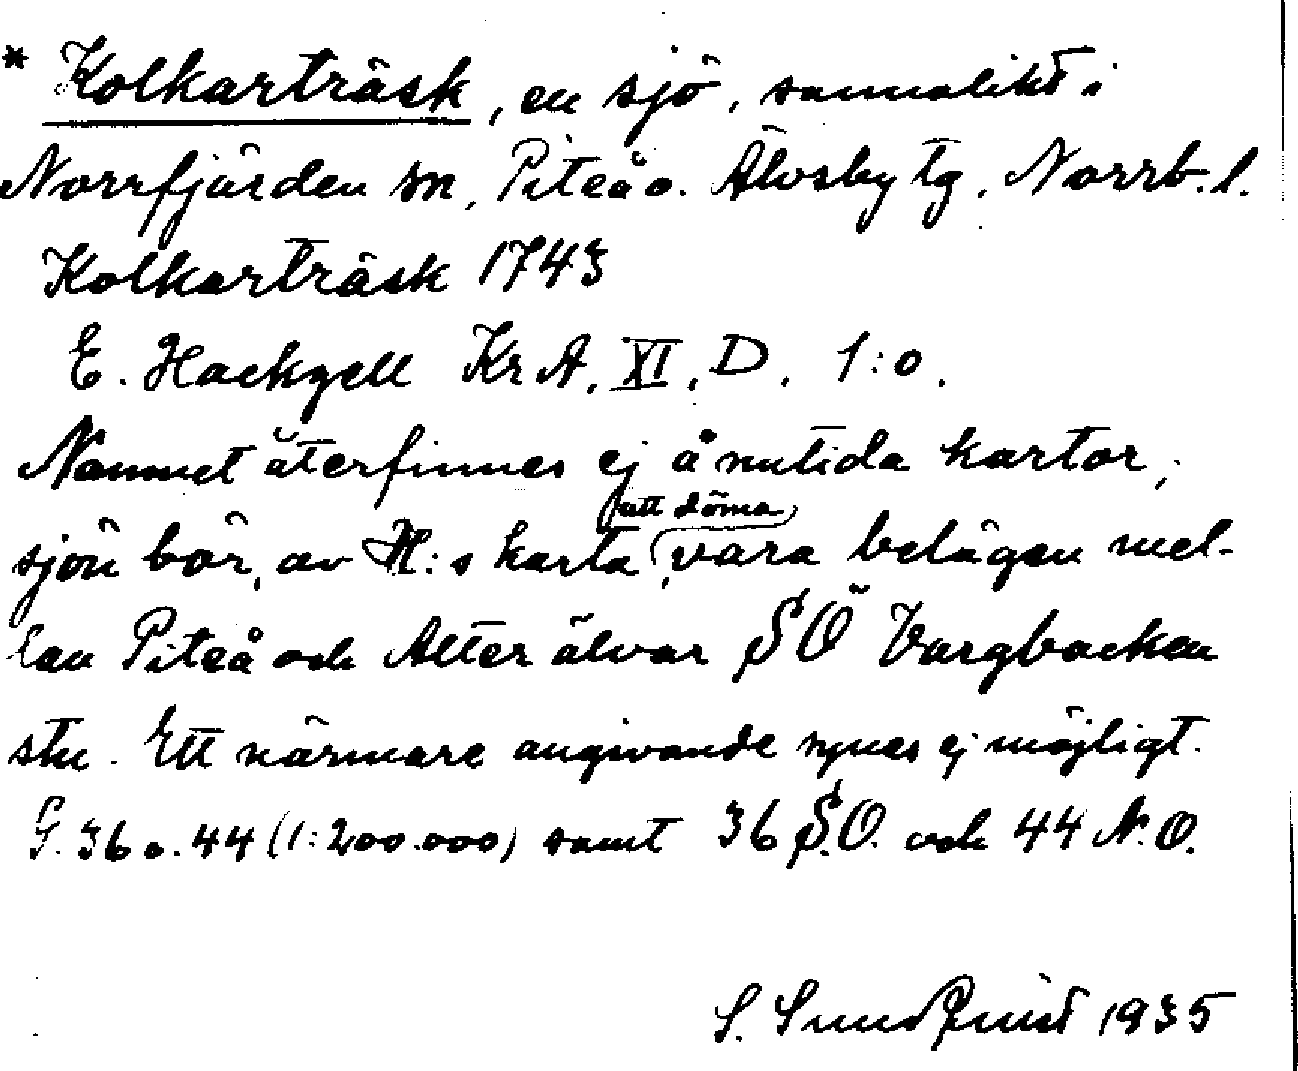 * Kolkarträsk, en sjö, sannolikt i
Norrfjärden sn, Piteå o. Älvsby tg, Norrb. l.
Kolkarträsk 1743
E. Hackzell Kr A. XI. D. 1:0.
Namnet återfinnes ej å nutida kartor,
sjön bör, av H:s karta att döma, vara belägen mel-
lan Piteå och Alter älvar SÖ Vargbacken
stn. Ett närmare angivande synes ej möjligt.
G. 36 o. 44 (1:200.000) samt 36 S.O. och 44 N.O.
S. Sundquist 1935